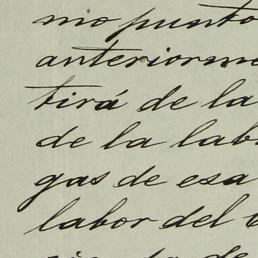 mo punto
anteriorme
tirá de la
de la lab
gas de esa
labor del